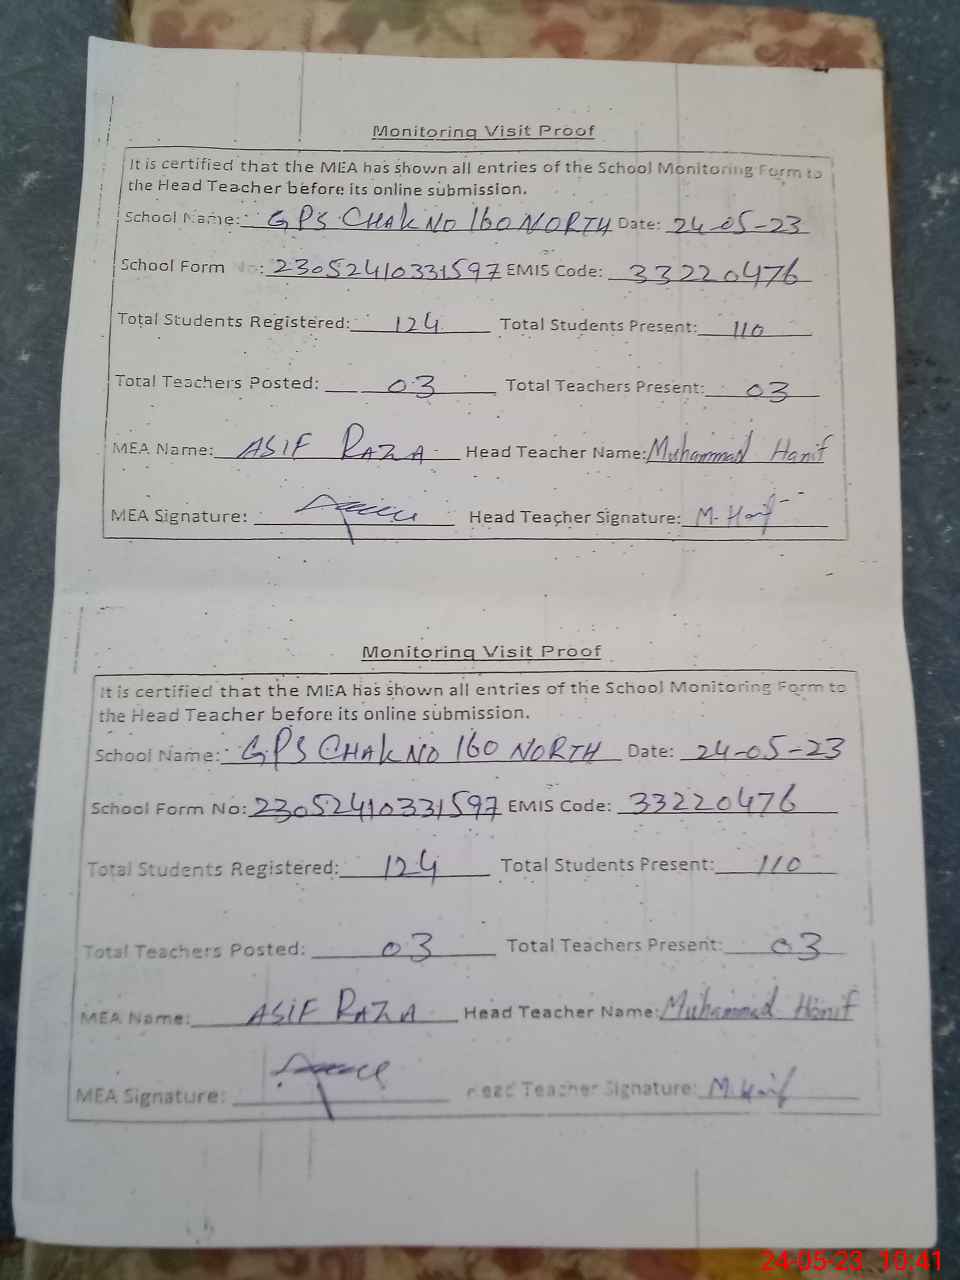 Monitoring Visit Proof
It is certified that the MEA has shown all entries of the School Monitoring Form to
the Head Teacher before its online submission.
School Name: GPS CHAK NO 160 NORTH Date: 24-05-23
School Form No: 23052410331597 EMIS Code: 33220476
Total Students Registered: 124 Total Students Present: 110
Total Teachers Posted: 03 Total Teachers Present: 03
MEA Name: ASIF RAZA Head Teacher Name: Muhammad Hanif
MEA Signature: Head Teacher Signature: M. Hanif
Monitoring Visit Proof
It is certified that the MEA has shown all entries of the School Monitoring Form to
the Head Teacher before its online submission.
School Name: GPS CHAK NO 160 NORTH Date: 24-05-23
School Form No: 23052410331597 EMIS Code: 33220476
Total Students Registered: 124 Total Students Present: 110
Total Teachers Posted: 03 Total Teachers Present: 03
MEA Name: ASIF RAZA Head Teacher Name: Muhammad Hanif
MEA Signature: Head Teacher Signature: M. Hanif
24-05-23 10:41